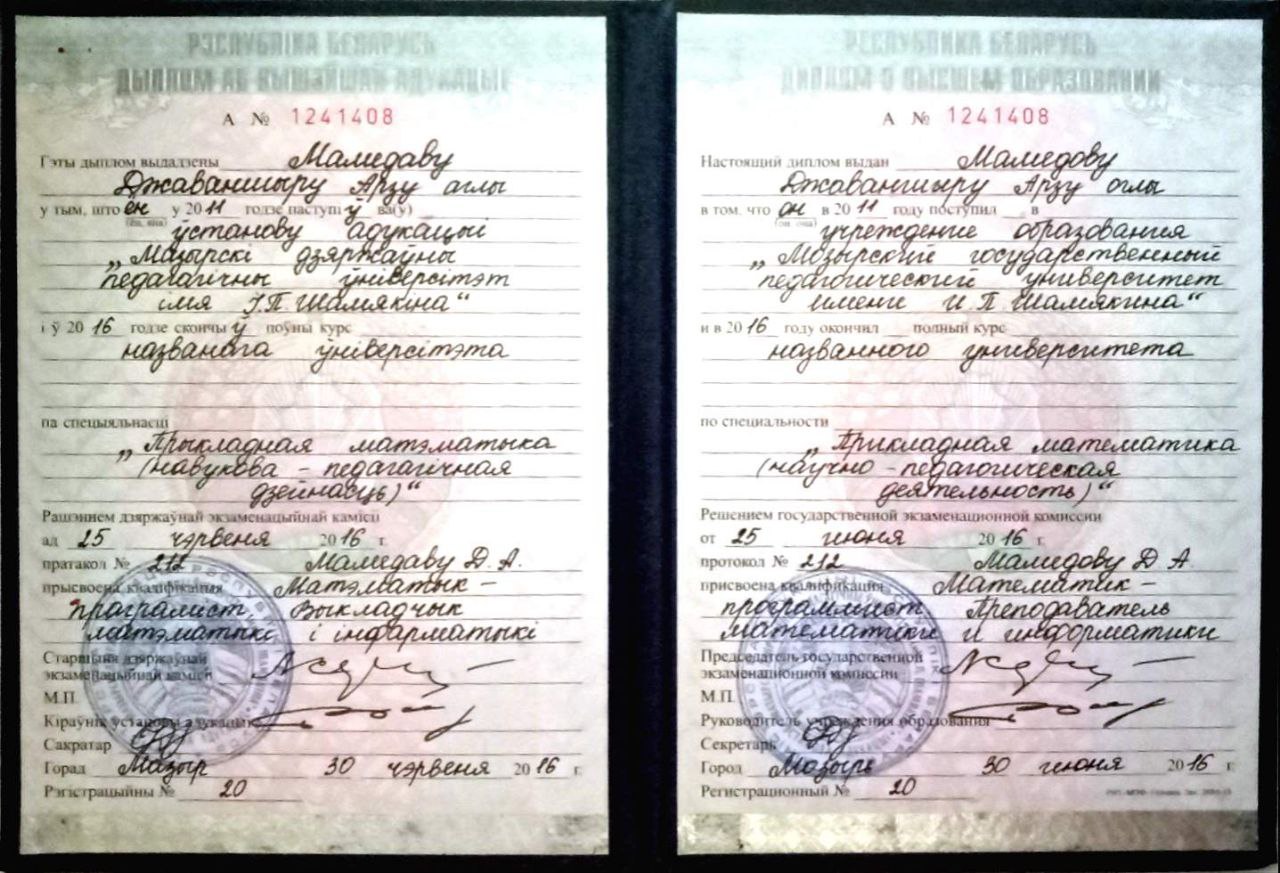 РЭСПУБЛІКА БЕЛАРУСЬ
ДЫПЛОМ АБ ВЫШЭЙШАЙ АДУКАЦЫІ
А № 1241408
Гэты дыплом выдадзены Мамедаву
Джаваншыру Арзу аглы
у тым, што ён у 2011 годзе паступіў ва(у)
(ён, яна)
ўстанову адукацыі
„Мазырскі дзяржаўны
педагагічны ўніверсітэт
імя І.П. Шамякіна“
і ў 2016 годзе скончыў поўны курс
названага ўніверсітэта
па спецыяльнасці
„Прыкладная матэматыка
(навукова - педагагічная
дзейнасць)“
Рашэннем дзяржаўнай экзаменацыйнай камісіі
ад 25 чэрвеня 2016 г.
пратакол № 212 Мамедаву Д. А.
прысвоена кваліфікацыя Матэматык -
праграміст. Выкладчык
матэматыкі і інфарматыкі
Старшыня дзяржаўнай
экзаменацыйнай камісіі
М.П.
Кіраўнік установы адукацыі
Сакратар
Горад Мазыр 30 чэрвеня 2016 г.
Рэгістрацыйны № 20
РЕСПУБЛИКА БЕЛАРУСЬ
ДИПЛОМ О ВЫСШЕМ ОБРАЗОВАНИИ
А № 1241408
Настоящий диплом выдан Мамедову
Джаваншыру Арзу оглы
в том, что он в 2011 году поступил в
(он, она)
учреждение образования
„Мозырский государственный
педагогический университет
имени И.П. Шамякина“
и в 2016 году окончил полный курс
названного университета
по специальности
„Прикладная математика
(научно - педагогическая
деятельность)“
Решением государственной экзаменационной комиссии
от 25 июня 2016 г.
протокол № 212 Мамедову Д. А.
присвоена квалификация Математик -
программист. Преподаватель
математики и информатики
Председатель государственной
экзаменационной комиссии
М.П.
Руководитель учреждения образования
Секретарь
Город Мозырь 30 июня 2016 г.
Регистрационный № 20